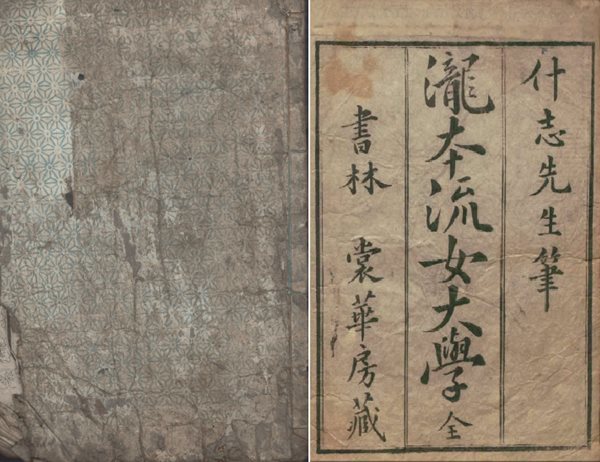 什志先生筆
瀧本流女大學 全
書林 裳華房藏